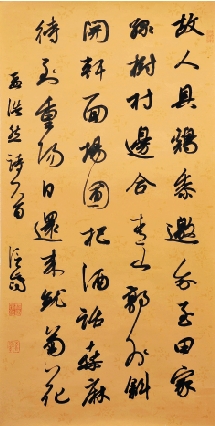 故人具鷄黍邀我至田家
綠樹村邊合青山郭外斜
開軒面場圃把酒話桑麻
待到重陽日還來就菊花
孟浩然詩一首